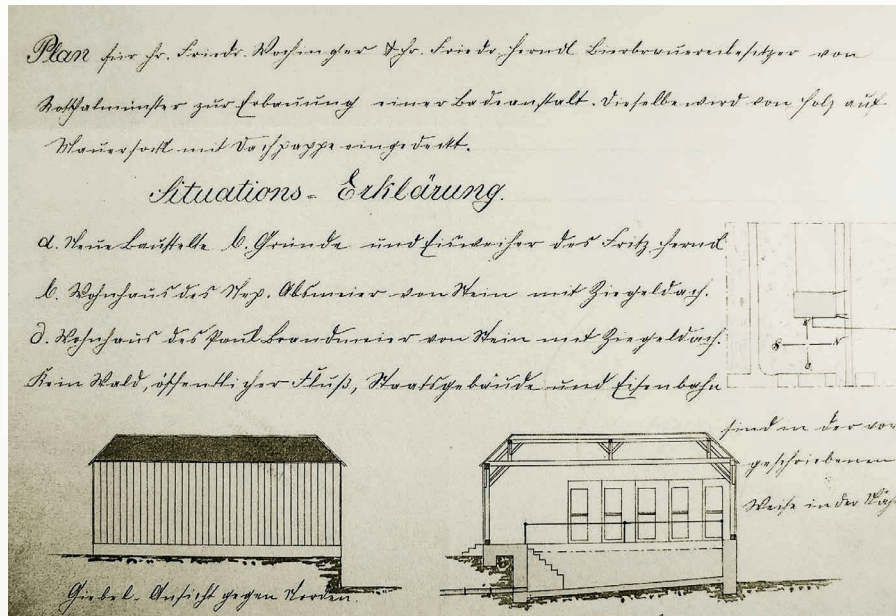 Plan für Hr. Friedr. Wochinger & Hr. Friedr. Herndl Bierbrauereibesitzer von
Rotthalmünster zur Erbauung einer Badeanstalt. Dieselbe wird von Holz auf
Mauersockl mit Dachpappe eingedeckt.
Situations-Erklärung.
a. Neue Baustelle b. Gründe und Eisweiher des Fritz Herndl
b. Wohnhaus des Nep. Absmeier von Stein mit Ziegeldach.
d. Wohnhaus des Paul Brandmeier von Stein mit Ziegeldach.
Kein Wald, öffentlicher Fluß, Staatsgebäude und Eisenbahn
sind in der vor
geschriebenen
Weise in der Näh
Giebel-Ansicht gegen Norden.